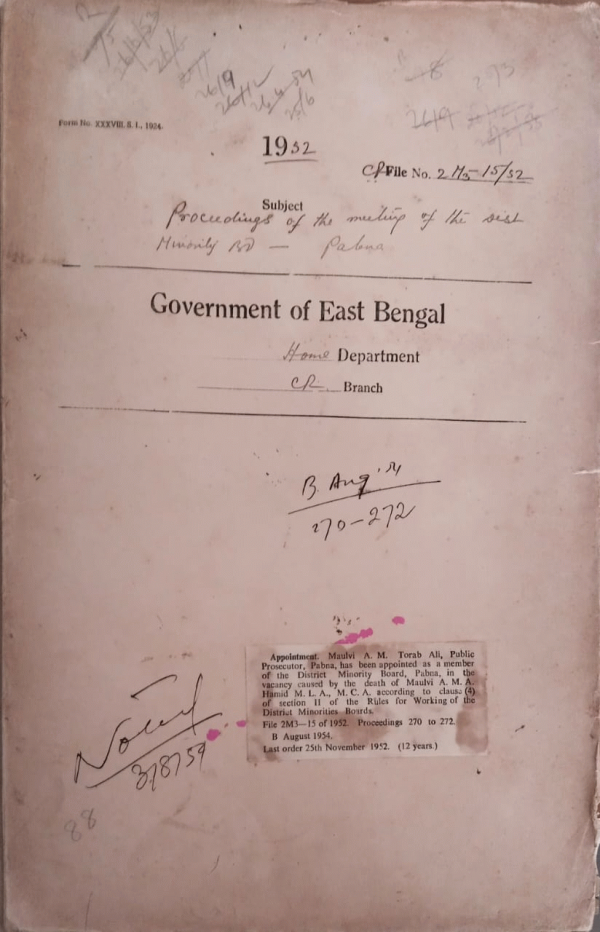 26/9
26/12
26/6
26/9
Form No. XXXVIII. S. I., 1924.
1952
CR File No. 2 M3-15/52
Subject
Proceedings of the meeting of the Dist
Minority BD — Pabna
Government of East Bengal
Home Department
CR Branch
B. Aug '54
270-272
Appointment. Maulvi A. M. Torab Ali, Public
Prosecutor, Pabna, has been appointed as a member
of the District Minority Board, Pabna, in the
vacancy caused by the death of Maulvi A. M. A.
Hamid M. L. A., M. C. A. according to clause (4)
of section II of the Rules for Working of the
District Minorities Boards.
File 2M3—15 of 1952. Proceedings 270 to 272.
B August 1954.
Last order 25th November 1952. (12 years.)
Noted
3/8/59
88